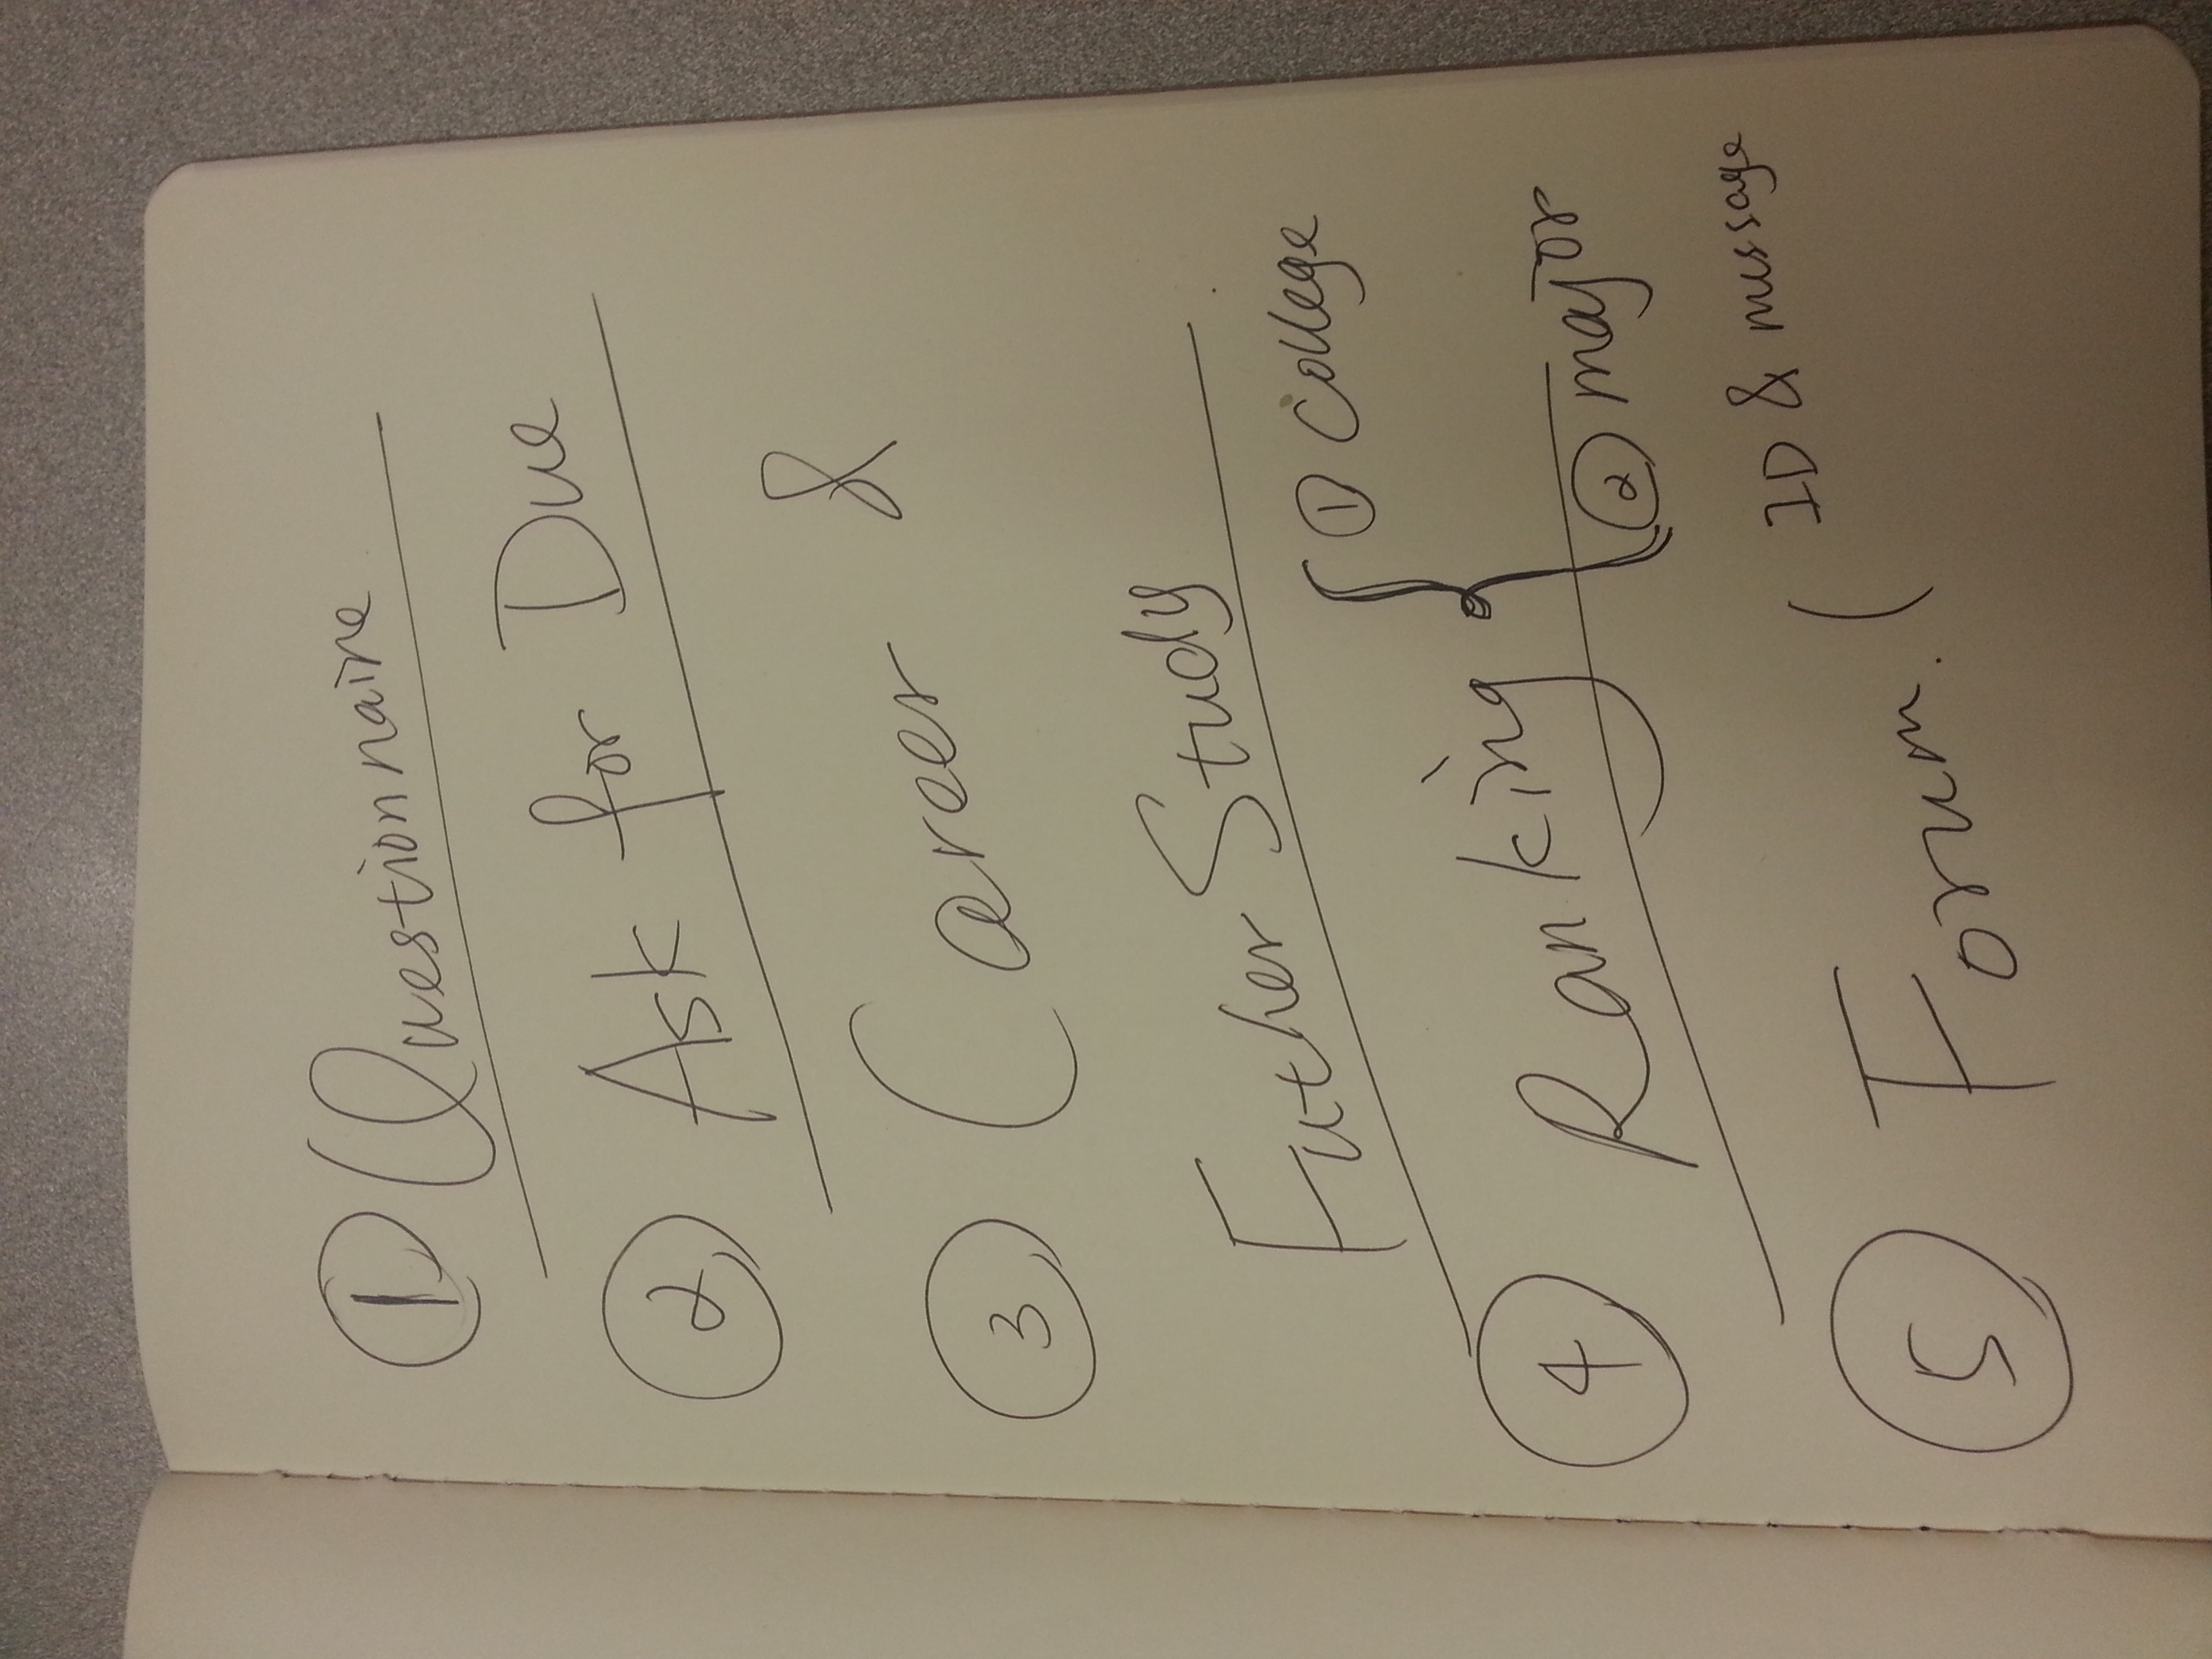 ① Questionnaire
② Ask for Due
③ Career &
Futher Study
④ Ranking { ① College
② major
⑤ Forum. ( ID & mussage